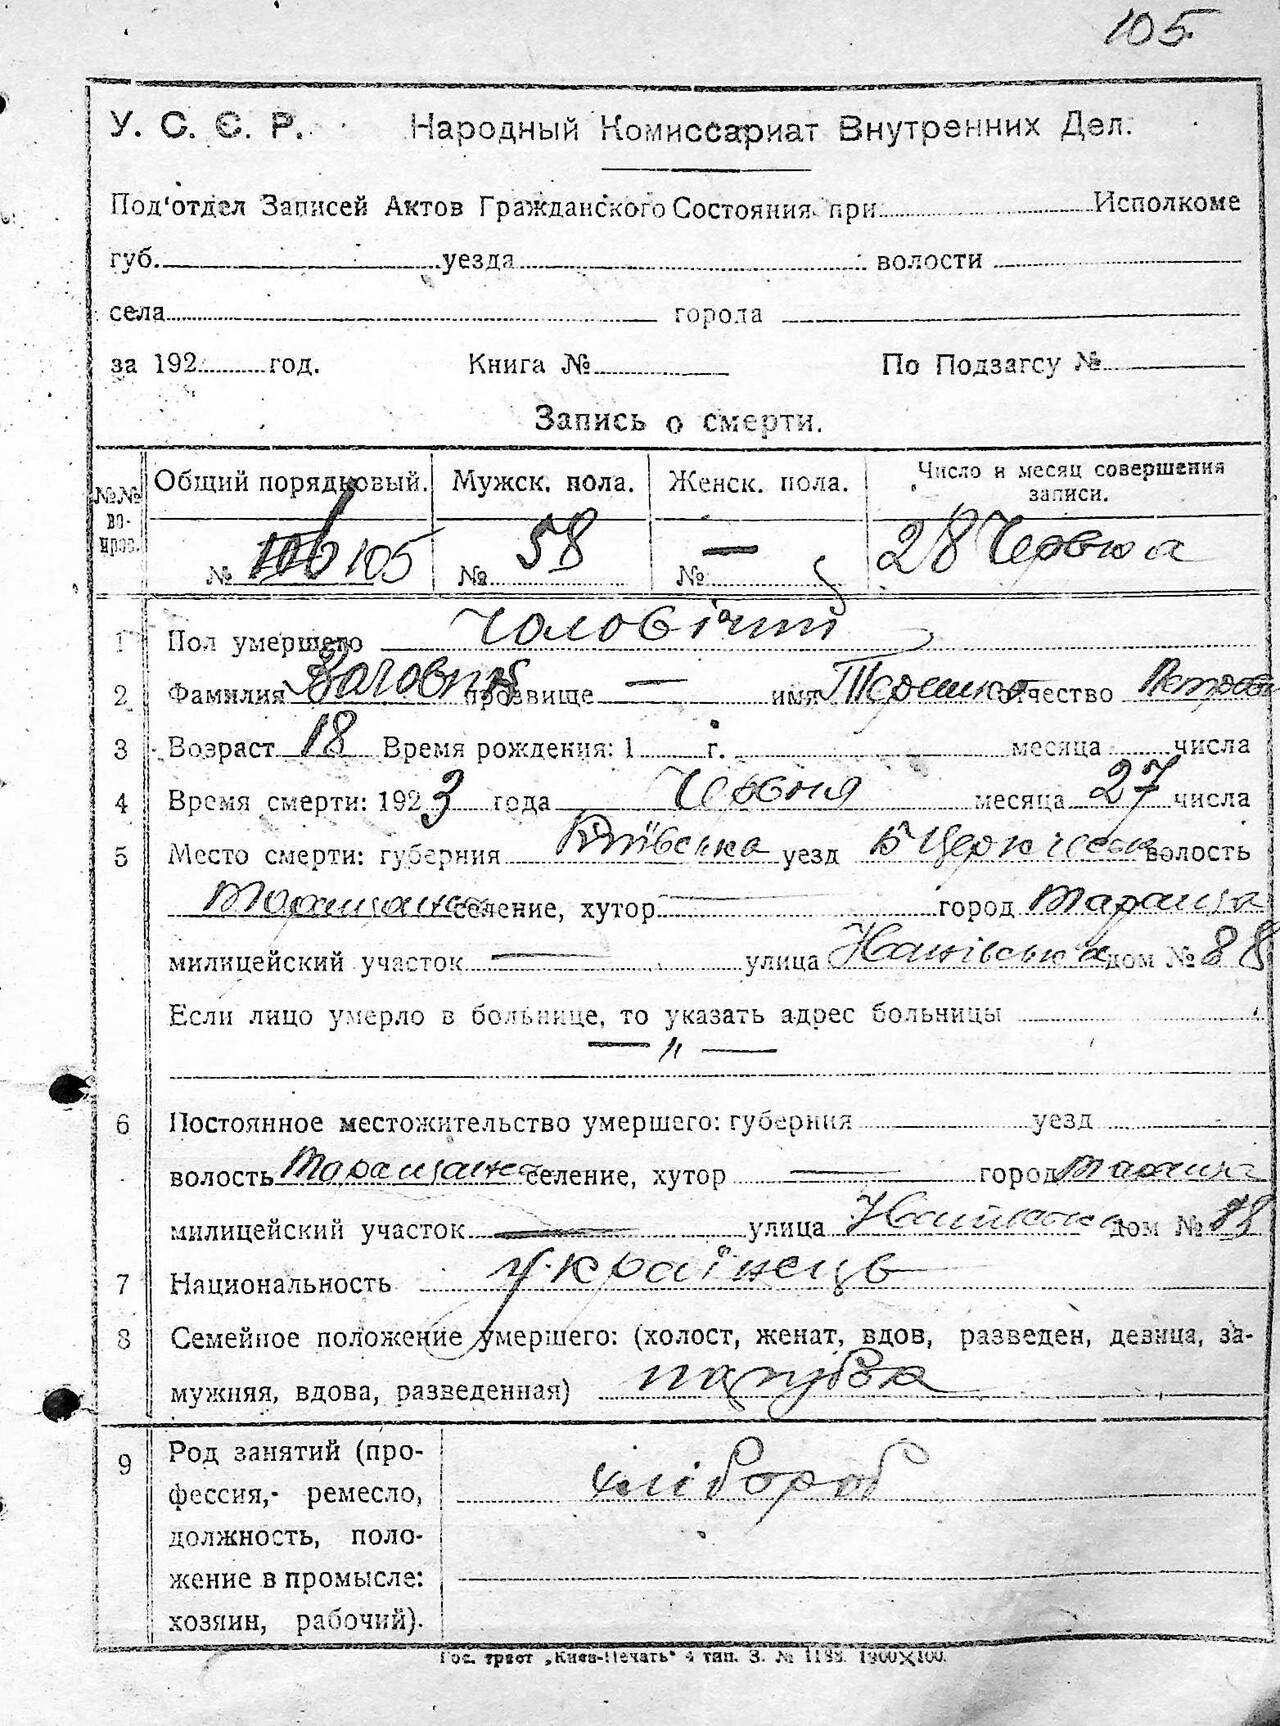 105
У. С. Є. Р. Народный Комиссариат Внутренних Дел.
Под'отдел Записей Актов Гражданского Состояния при Исполкоме
губ. уезда волости
села города
за 192 год. Книга № По Подзагсу №
Запись о смерти.
№№ во- прос. Общий порядковый. Мужск. пола. Женск. пола. Число и месяц совершения записи.
№ 106 105 № 58 № — 28 Червня
1 Пол умершего Чоловічий
2 Фамилия прозвище — имя Терешко отчество Петрович
3 Возраст 18 Время рождения: 1 г. месяца числа
4 Время смерти: 1923 года Червня месяца 27 числа
5 Место смерти: губерния Київська уезд Б Церківськ волость
Таращанська селение, хутор — город Тараща
милицейский участок — улица дом № 88
Если лицо умерло в больнице, то указать адрес больницы
— „ —
6 Постоянное местожительство умершего: губерния уезд
волость Таращанська селение, хутор — город Тараща
милицейский участок — улица дом № 88
7 Национальность Українець
8 Семейное положение умершего: (холост, женат, вдов, разведен, девица, за-
мужняя, вдова, разведенная) парубок
9 Род занятий (про-
фессия, ремесло, хлібороб
должность, поло-
жение в промысле:
хозяин, рабочий).
Гос. трест „Киев-Печать" 4 тип. З. № 1188. 1900×100.